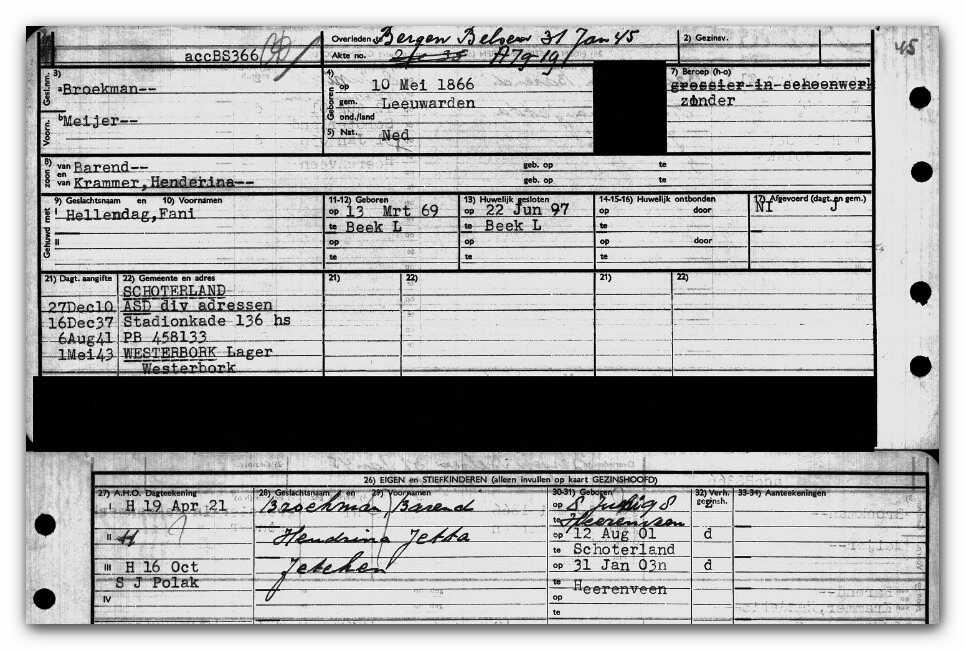 accBS366
Overleden te Bergen Belsen 31 Jan 45
Akte no. A79 19
2) Gezinsv.
45
Gesl.nm. 3) a Broekman--
Voorn. b Meijer--
4) Geboren
op 10 Mei 1866
gem. Leeuwarden
ond./land
5) Nat. Ned
7) Beroep (h-o)
grossier in schoenwerk
zonder
8) zoon
van Barend-- geb. op te
en
van Krammer, Henderina-- geb. op te
Gehuwd met
9) Geslachtsnaam en 10) Voornamen
I Hellendag, Fani
II
11-12) Geboren
op 13 Mrt 69
te Beek L
op
te
13) Huwelijk gesloten
op 22 Jun 97
te Beek L
op
te
14-15-16) Huwelijk ontbonden
op door
te
op door
te
17) Afgevoerd (dagt. en gem.)
NI J
21) Dagt. aangifte 22) Gemeente en adres 21) 22) 21) 22)
SCHOTERLAND
27Dec10 ASD div adressen
16Dec37 Stadionkade 136 hs
6Aug41 PB 458133
1Mei43 WESTERBORK Lager
Westerbork
26) EIGEN en STIEFKINDEREN (alleen invullen op kaart GEZINSHOOFD)
27) A.H.O. Dagteekening 28) Geslachtsnaam en 29) Voornamen 30-31) Geboren 32) Verh. gezinsh. 33-34) Aanteekeningen
I H 19 Apr 21 Broekman Barend op 8
te Heerenveen
II H Hendrina Jetta op 12 Aug 01 d
te Schoterland
III H 16 Oct Jetchen op 31 Jan 03 d
S J Polak te Heerenveen
IV op
te